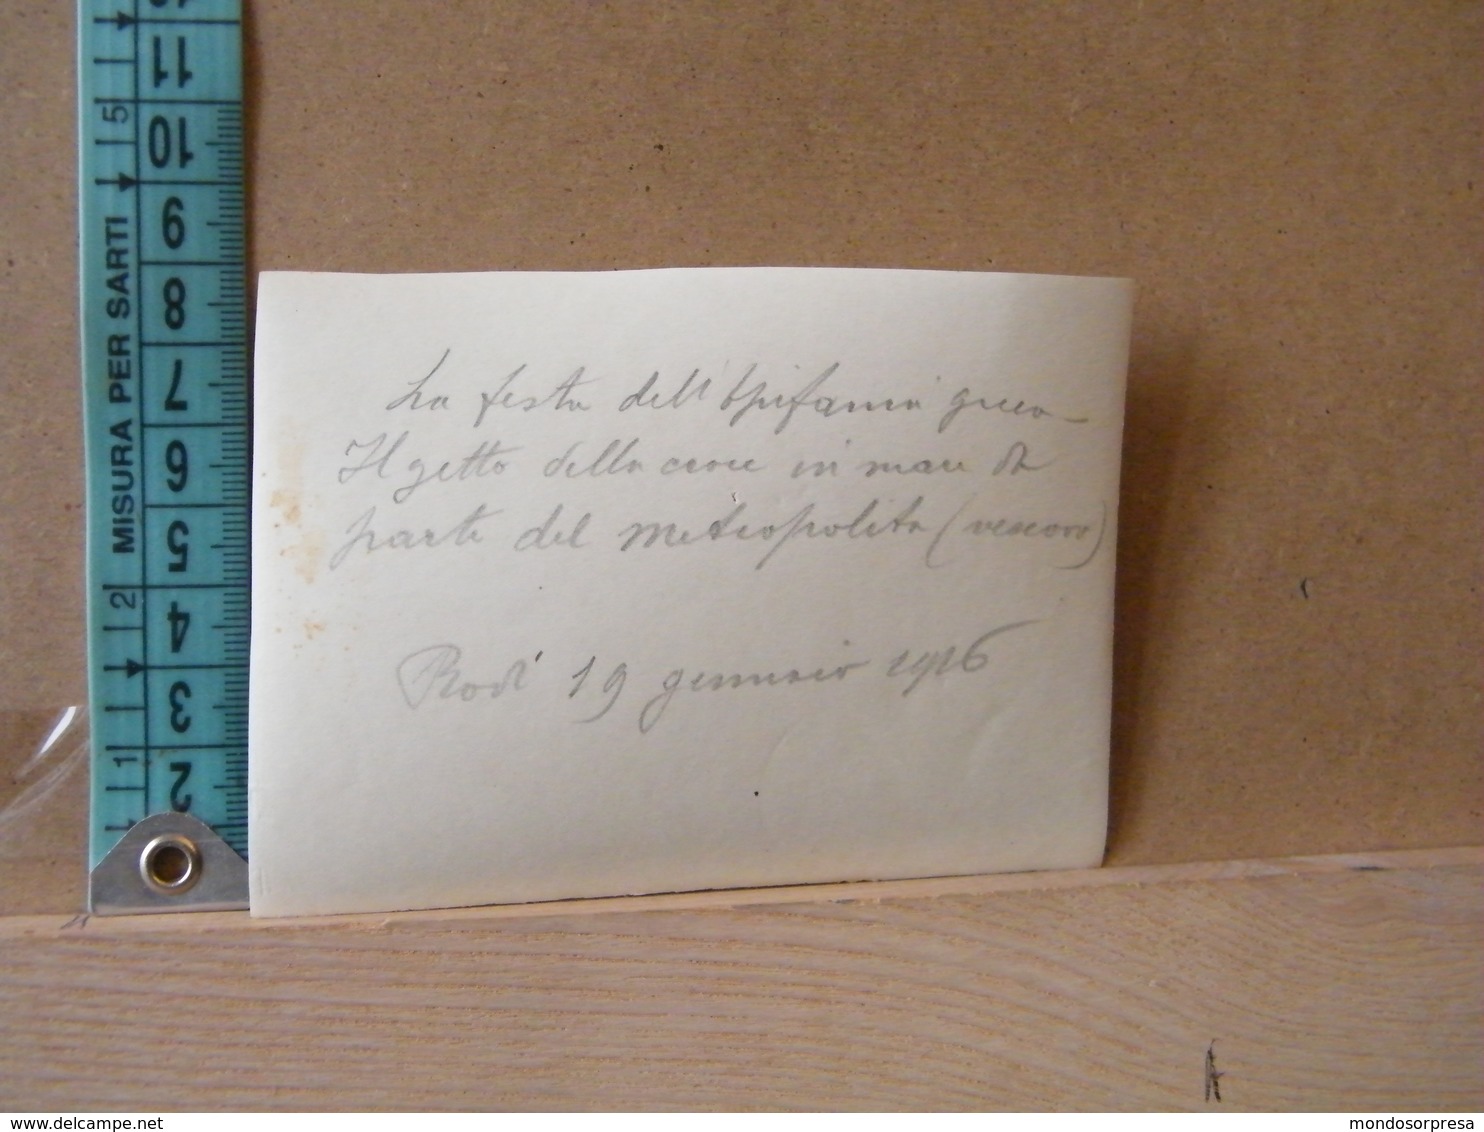 La festa dell'Epifania greca -
Il getto della croce in mare da
parte del metropolita (vescovo)
Rodi 19 gennaio 1916
MISURA PER SARTI
11
10
9
8
7
6
5
4
3
2
5
2
1
www.delcampe.net
mondosorpresa